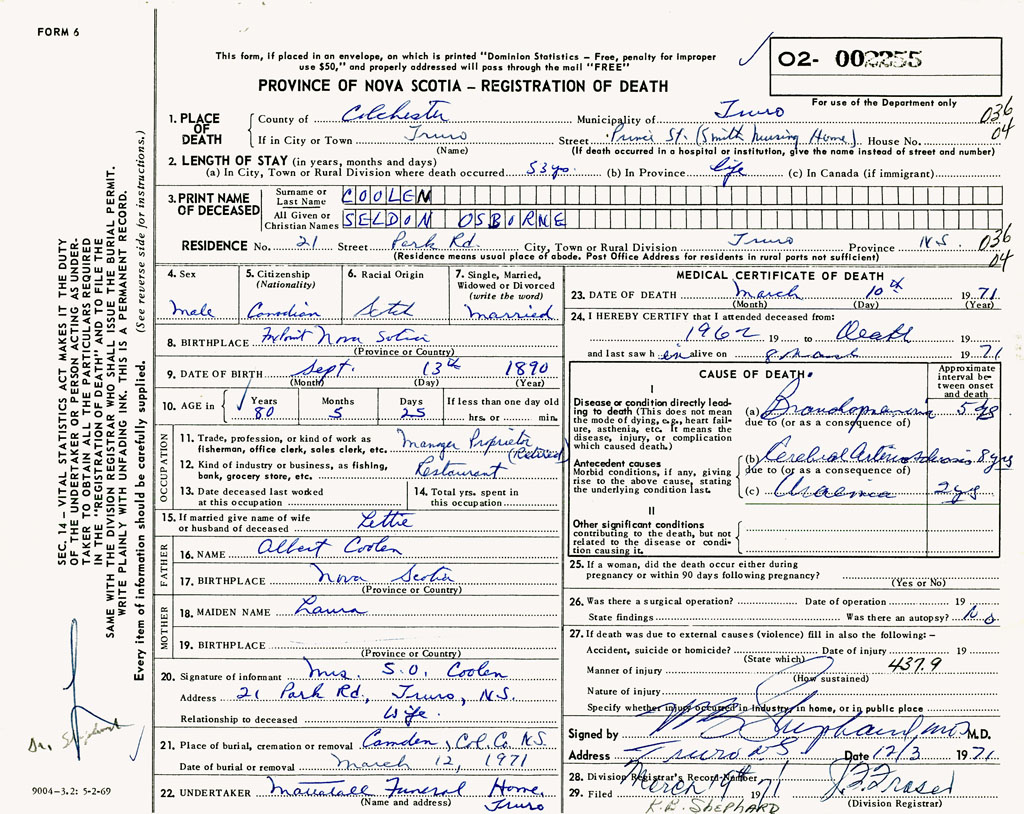 FORM 6
This form, if placed in an envelope, on which is printed "Dominion Statistics – Free, penalty for improper
use $50," and properly addressed will pass through the mail "FREE"
PROVINCE OF NOVA SCOTIA – REGISTRATION OF DEATH
O2- 002255
For use of the Department only
1. PLACE OF DEATH County of Colchester Municipality of Truro 036
If in City or Town Truro Street Prince St. (Smith Nursing Home) House No. 04
(Name) (If death occurred in a hospital or institution, give the name instead of street and number)
2. LENGTH OF STAY (in years, months and days)
(a) In City, Town or Rural Division where death occurred 53 yrs. (b) In Province life (c) In Canada (if immigrant)
3. PRINT NAME OF DECEASED Surname or Last Name COOLEN
All Given or Christian Names SELDON OSBORNE
RESIDENCE No. 21 Street Park Rd. City, Town or Rural Division Truro Province N.S. 036
(Residence means usual place of abode. Post Office Address for residents in rural parts not sufficient) 04
4. Sex Male
5. Citizenship (Nationality) Canadian
6. Racial Origin Scotch
7. Single, Married, Widowed or Divorced (write the word) Married
8. BIRTHPLACE Nova Scotia
(Province or Country)
9. DATE OF BIRTH Sept. 13th 1890
(Month) (Day) (Year)
10. AGE in Years Months Days If less than one day old
80 5 25 hrs. or min.
OCCUPATION
11. Trade, profession, or kind of work as fisherman, office clerk, sales clerk, etc. Manager Proprietor (Retired)
12. Kind of industry or business, as fishing, bank, grocery store, etc. Restaurant
13. Date deceased last worked at this occupation
14. Total yrs. spent in this occupation
15. If married give name of wife or husband of deceased Lettie
FATHER
16. NAME Albert Coolen
17. BIRTHPLACE Nova Scotia
(Province or Country)
MOTHER
18. MAIDEN NAME Laura
19. BIRTHPLACE
(Province or Country)
20. Signature of informant Mrs. S. O. Coolen
Address 21 Park Rd., Truro, N.S.
Relationship to deceased Wife
21. Place of burial, cremation or removal Camden, Col. Co. N.S.
Date of burial or removal March 12, 1971
22. UNDERTAKER Mattatall Funeral Home
(Name and address) Truro
MEDICAL CERTIFICATE OF DEATH
23. DATE OF DEATH March 10th 1971
(Month) (Day) (Year)
24. I HEREBY CERTIFY that I attended deceased from:
1962 19 to Death
and last saw him alive on 8 March 1971
CAUSE OF DEATH
Approximate interval between onset and death
I
Disease or condition directly leading to death (This does not mean the mode of dying, e.g., heart failure, asthenia, etc. It means the disease, injury, or complication which caused death.)
(a) 5
due to (or as a consequence of)
Antecedent causes
Morbid conditions, if any, giving rise to the above cause, stating the underlying condition last.
(b) Cerebral Arteriosclerosis 8 yrs
due to (or as a consequence of)
(c) Uraemia 2 yrs
II
Other significant conditions
contributing to the death, but not related to the disease or condition causing it.
25. If a woman, did the death occur either during pregnancy or within 90 days following pregnancy?
(Yes or No)
26. Was there a surgical operation? Date of operation 19
State findings Was there an autopsy? No
27. If death was due to external causes (violence) fill in also the following: –
Accident, suicide or homicide? Date of injury 19
(State which) 437.9
Manner of injury
(How sustained)
Nature of injury
Specify whether injury occurred in industry, in home, or in public place
Signed by M.D.
Address Truro NS Date 12/3 1971
28. Division Registrar's Record Number
29. Filed March 1971 J.F. Fraser
K.B. SHEPHARD (Division Registrar)
SEC. 14 – VITAL STATISTICS ACT MAKES IT THE DUTY
OF THE UNDERTAKER OR PERSON ACTING AS UNDER-
TAKER TO OBTAIN ALL THE PARTICULARS REQUIRED
IN THE "REGISTRATION OF DEATH" AND TO FILE THE
SAME WITH THE DIVISION REGISTRAR WHO SHALL ISSUE THE BURIAL PERMIT.
WRITE PLAINLY WITH UNFADING INK. THIS IS A PERMANENT RECORD.
Every item of information should be carefully supplied. (See reverse side for instructions.)
Dr.
9004-3.2: 5-2-69